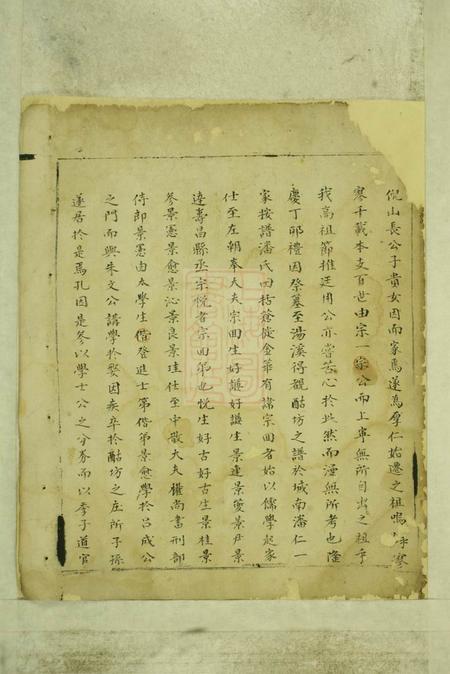 倪山長公子貴女因而家焉遂為厚仁始遷之祖嗚呼寥
寥千載本支百世由宗一宗公而上寧無所自出之祖乎
我高祖節推廷用公亦嘗苦心於此然而漫無所考也隆
慶丁卯禮因祭墓至湯溪得覩酤坊之譜於城南潘仁一
家按譜潘氏四括蒼徙金華有諱宗回者始以儒學起家
仕至左朝奉大夫宗回生好謙好謙生景連景夔景尹景
逵壽昌縣丞宗悅者宗回弟也悅生好古好古生景桂景
參景憲景愈景沁景良景珪仕至中散大夫權尚書刑部
侍郎景憲由太學生登進士第偕弟景愈學於呂成公
之門而與朱文公講學於婺因疾卒於酤坊之庄所子孫
遂居於是焉孔因是參以學士公之分券而以李子道官